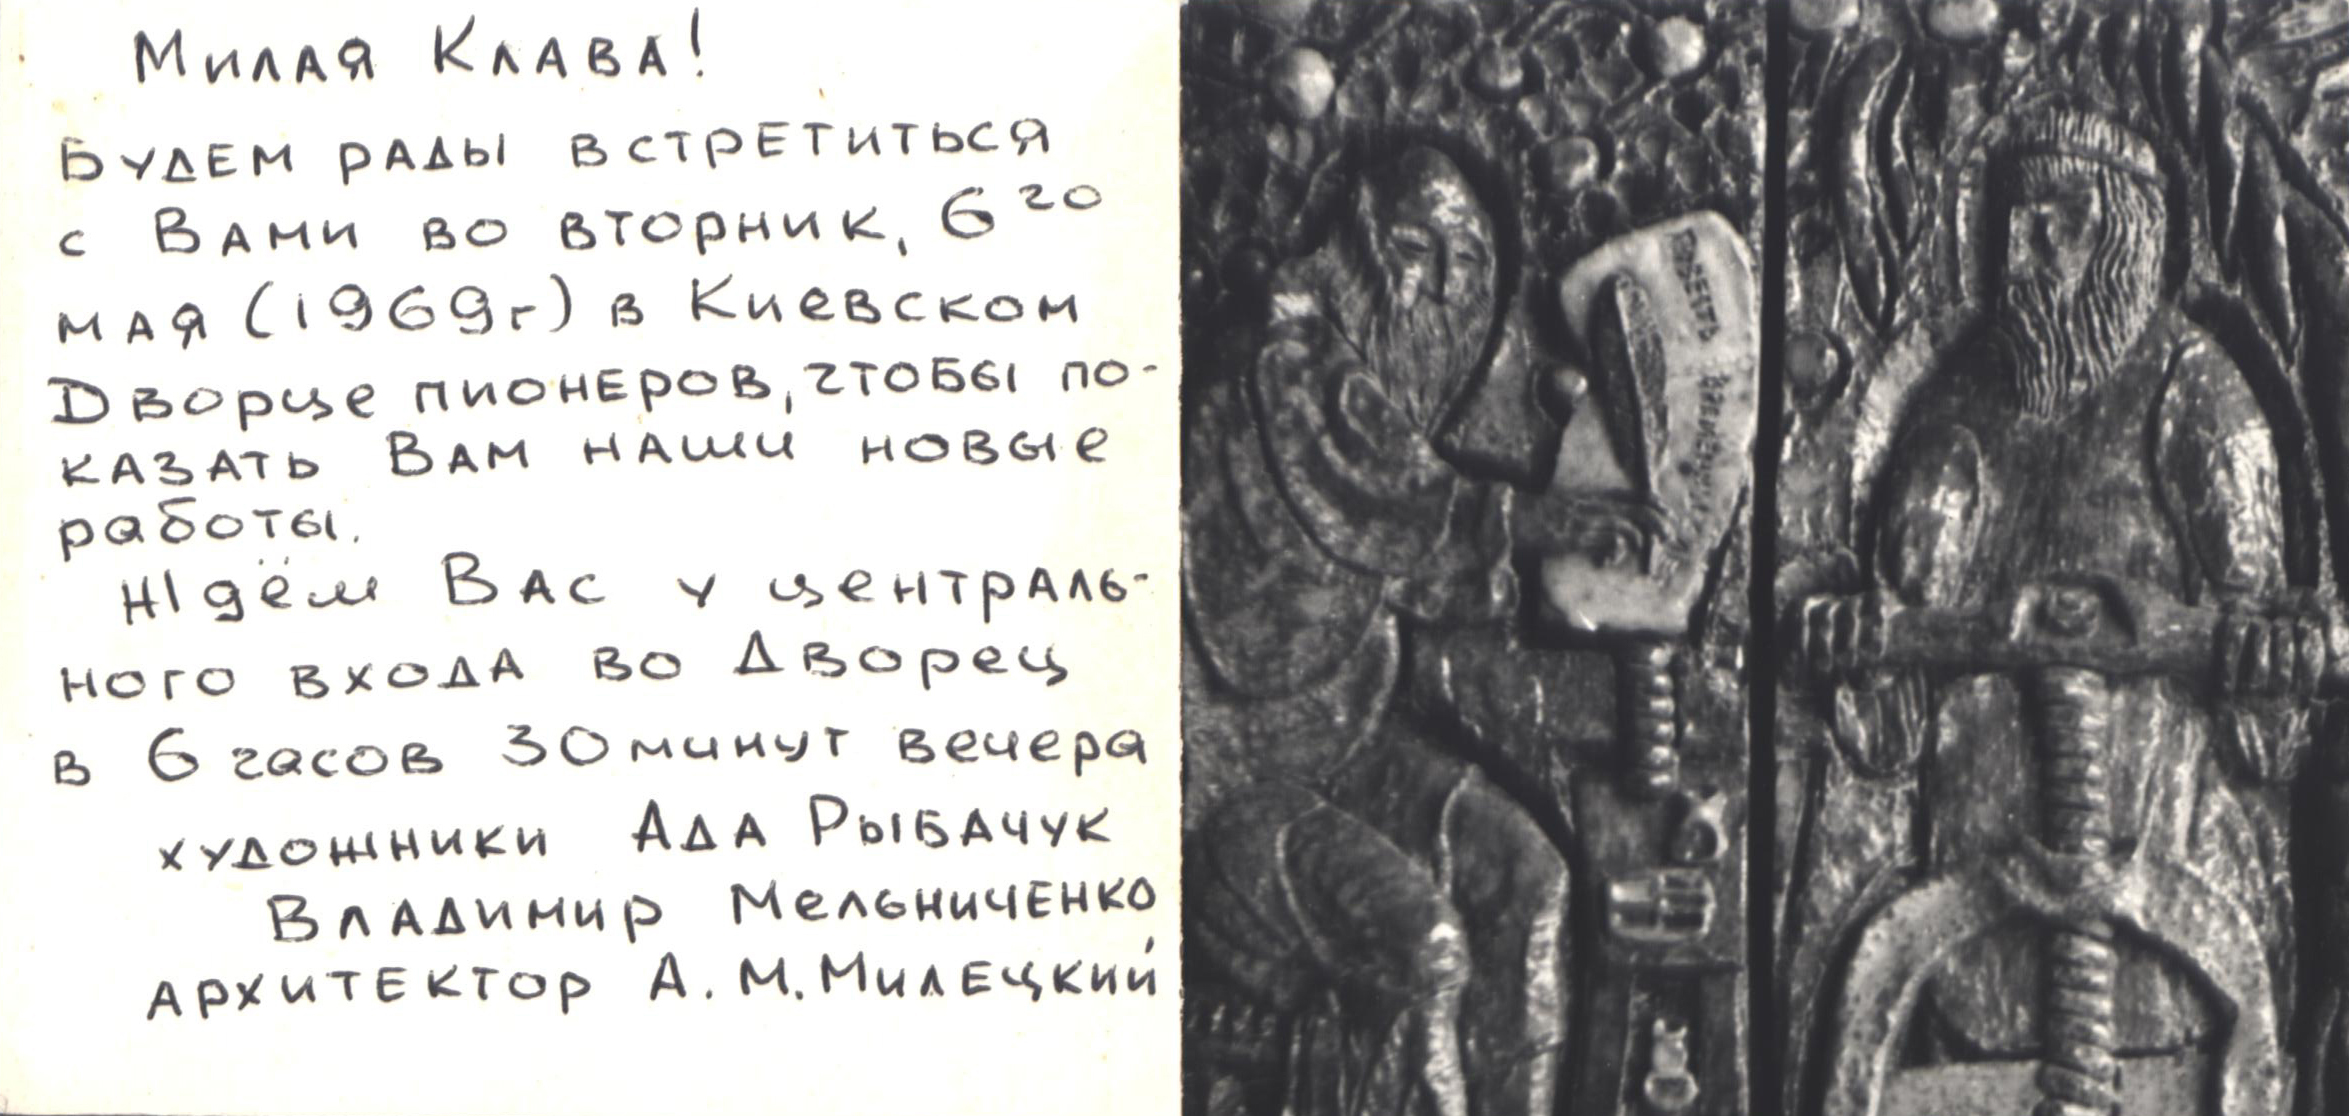 Милая Клава!
Будем рады встретиться
с Вами во вторник, 6го
мая (1969г) в Киевском
Дворце пионеров, чтобы по-
казать Вам наши новые
работы.
Ждём Вас у централь-
ного входа во Дворец
в 6 часов 30 минут вечера
художники Ада Рыбачук
Владимир Мельниченко
архитектор А. М. Милецкий